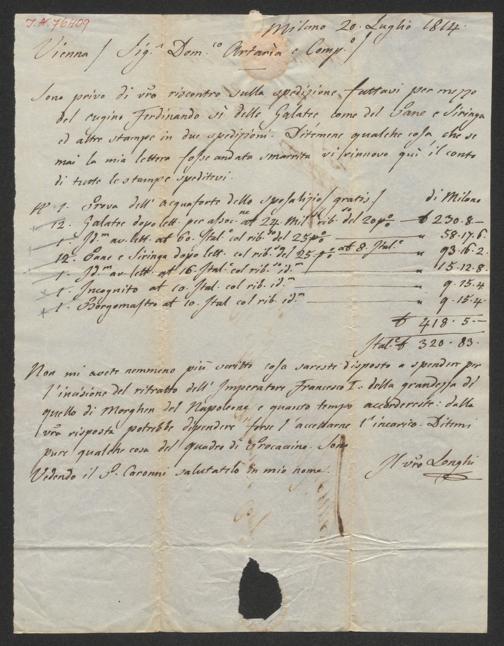 I.N. 76409
Milano 20. Luglio 1814.
Vienna / Sig.ʳ Dom.ᶜᵒ Artaria e Comp.ᵒ /
Sono privo di vʳo riscontro sulla spedizione fattavi per mezzo
del cugino Ferdinando sì delle Galatee come del Pane e Siringa
ed altre stampe in due spedizioni. Ditemene qualche cosa che se
mai la mia lettera fosse andata smarrita vi rinnovo qui il conto
di tutte le stampe speditevi.
Nº 1. Prova dell'acquaforte dello sposalizio / gratis / di Milano
12. Galatee dopo lett. per assoc.ⁿᵉ at 24 Mil.ⁱ rib. del 20 p.º ₤ 230.8.–
1. Id.ᵐ av. lett. at 60. Ital.ᵉ col rib. del 25 p.º " 58.17.6.
12. Pane e Siringa dopo lett. col rib. del 25 p.º at 8. Ital.ᵉ " 93.16.2.
1. Id.ᵐ av. lett. at 16. Ital. col rib. id.ᵐ " 15.12.8.
1. Incognito at 10. Ital. col rib. id.ᵐ " 9.15.4
1. Borgomastro at 10. Ital. col rib. id.ᵐ " 9.15.4
₤ 418.5.–
Ital.ᵉ ₤ 320.83.
Non mi avete nemmeno più scritto cosa sareste disposto a spendere per
l'incisione del ritratto dell'Imperatore Francesco I. della grandezza di
quello di Morghen del Napoleone e quanto tempo accordereste: dalla
vʳa risposta potrebbe dipendere forse l'accettarne l'incarico. Ditemi
pure qualche cosa del quadro di Procaccino. Sono
Vedendo il S. Caronni salutatelo in mio nome.
Il vʳo Longhi